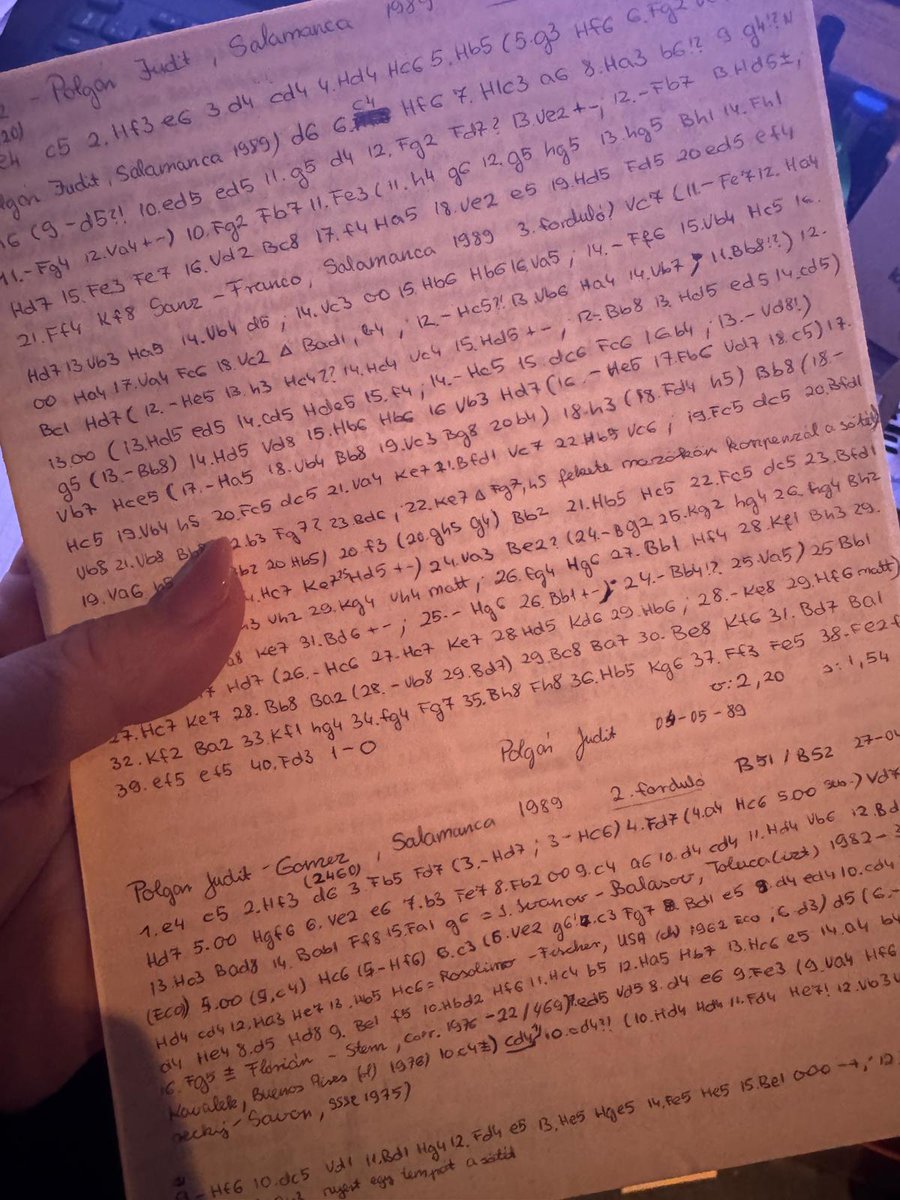 2 - Polgár Judit, Salamanca 1989
e4 c5 2.Hf3 e6 3.d4 cd4 4.Hd4 Hc6 5.Hb5 (5.g3 Hf6 6.Fg2
Judit, Salamanca 1989) d6 6.c4 Hf6 7.H1c3 a6 8.Ha3 b6!? 9 g4!?N
(9-d5?! 10.ed5 ed5 11.g5 d4 12.Fg2 Fd7? 13.Ve2+-; 12.-Fb7 13.Hd5±,
11.-Fg4 12.Va4+-) 10.Fg2 Fb7 11.Fe3 (11.h4 g6 12.g5 hg5 13.hg5 Bh1 14.Fh1
Hd7 15.Fe3 Fe7 16.Vd2 Bc8 17.f4 Ha5 18.Ve2 e5 19.Hd5 Fd5 20 ed5 ef4
21.Ff4 Kf8 Sanz - Franco, Salamanca 1989 3.forduló) Vc7 (11.-Fe7 12.Ha4
Hd7 13.Vb3 Ha5 14.Vb4 d5; 14.Vc3 00 15.Hb6 Hb6 16.Va5; 14.-Ff6 15.Vb4 Hc5 16.
00 Ha4 17.Va4 Fc6 18.Vc2 Δ Bad1, b4; 12.-Hc5?! 13 Vb6 Ha4 14.Vb7; 11.Bb8!?) 12.
Bc1 Hd7 (12.-He5 13.h3 Hc4?? 14.Hc4 Vc4 15.Hd5+-; 12.-Bb8 13.Hd5 ed5 14.cd5)
13.00 (13.Hd5 ed5 14.cd5 Hde5 15.f4; 14.-Hc5 15.dc6 Fc6 16 b4; 13.-Vd8!)
g5 (13.-Bb8) 14.Hd5 Vd8 15.Hb6 Hb6 16 Vb3 Hd7 (16.-He5 17.Fb6 Vd7 18.c5) 17.
Vb7 Hce5 (17.-Ha5 18.Vb4 Bb8 19.Vc3 Bg8 20 b4) 18.h3 (18.Fd4 h5) Bb8 (18-
Hc5 19.Vb4 h5 20.Fc5 dc5 21.Va4 Ke7 21.Bfd1 Vc7 22.Hb5 Vc6; 19.Fc5 dc5 20.Bfd1
Vb8 21.Vb8 2.b3 Fg7? 23 Bd6; 22.Ke7 Δ Fg7, h5 fekete mezőkön kompenzál a sötét)
19.Va6 h5 20 Hb5) 20.f3 (20.gh5 g4) Bb2 21.Hb5 Hc5 22.Fc5 dc5 23.Bfd1
Hc7 Ke7 25 Hd5+-) 24.Va3 Be2? (24.-Bg2 25.Kg2 hg4 26.hg4 Bh2
Vh2 29.Kg4 Vh4 matt; 26.fg4 Hg6 27.Bb1 Hf4 28.Kf1 Bh3 29.
Ke7 31.Bd6+-; 25.- Hg6 26.Bb1+-; 24.-Bb4!? 25.Va5) 25 Bb1
Hd7 (26.-Hc6 27.Hc7 Ke7 28.Hd5 Kd6 29.Hb6; 28.-Ke8 29.Hf6 matt)
27.Hc7 Ke7 28.Bb8 Ba2 (28.-Vb8 29.Bd7) 29.Bc8 Ba7 30.Be8 Kf6 31.Bd7 Ba1
32.Kf2 Ba2 33.Kf1 hg4 34.fg4 Fg7 35.Bh8 Fh8 36.Hb5 Kg6 37.Ff3 Fe5 38.Fe2 f
39.ef5 ef5 40.Fd3 1-0
2,20 1,54
Polgár Judit 04-05-89
Polgár Judit - Gomez (2460), Salamanca 1989 2.forduló B51/B52 27-04
1.e4 c5 2.Hf3 d6 3.Fb5 Fd7 (3.-Hd7; 3-Hc6) 4.Fd7 (4.a4 Hc6 5.00) Vd7
Hd7 5.00 Hgf6 6.Ve2 e6 7.b3 Fe7 8.Fb2 00 9.c4 a6 10.d4 cd4 11.Hd4 Vb6 12 Bd
13.Hc3 Bad8 14.Bab1 Ff8 15.Fa1 g6 = J.Ivanov - Balasov, Toluca (izt) 1982 - 3
(Eco) 5.00 (5.c4) Hc6 (5-Hf6) 6.c3 (6.Ve2 g6 7.c3 Fg7 8.Bd1 e5 9.d4 ed4 10.cd4
Hd4 cd4 12.Ha3 He7 13.Hb5 Hc6 = Rosolimo - Fischer, USA (ch) 1962 Eco; 6.d3) d5 (6.-
d4 He4 8.d5 Hd8 9.Be1 f5 10.Hbd2 Hf6 11.Hc4 b5 12.Ha5 Hb7 13.Hc6 e5 14.a4 b4
16.Fg5 ± Florián - Stern, corr. 1976 -22/469) 7.ed5 Vd5 8.d4 e6 9.Fe3 (9.Va4 Hf6
Kavalek, Buenos Aires (ol) 1978) 10.c4±) cd4 10.cd4?! (10.Hd4 Hd4 11.Fd4 He7! 12.Vb3
- Savon, SSSR 1975)
- Hf6 10.dc5 Vd1 11.Bd1 Hg4 12.Fd4 e5 13.He5 Hge5 14.Fe5 He5 15.Be1 000 →; 12
nyert egy tempót a sötét